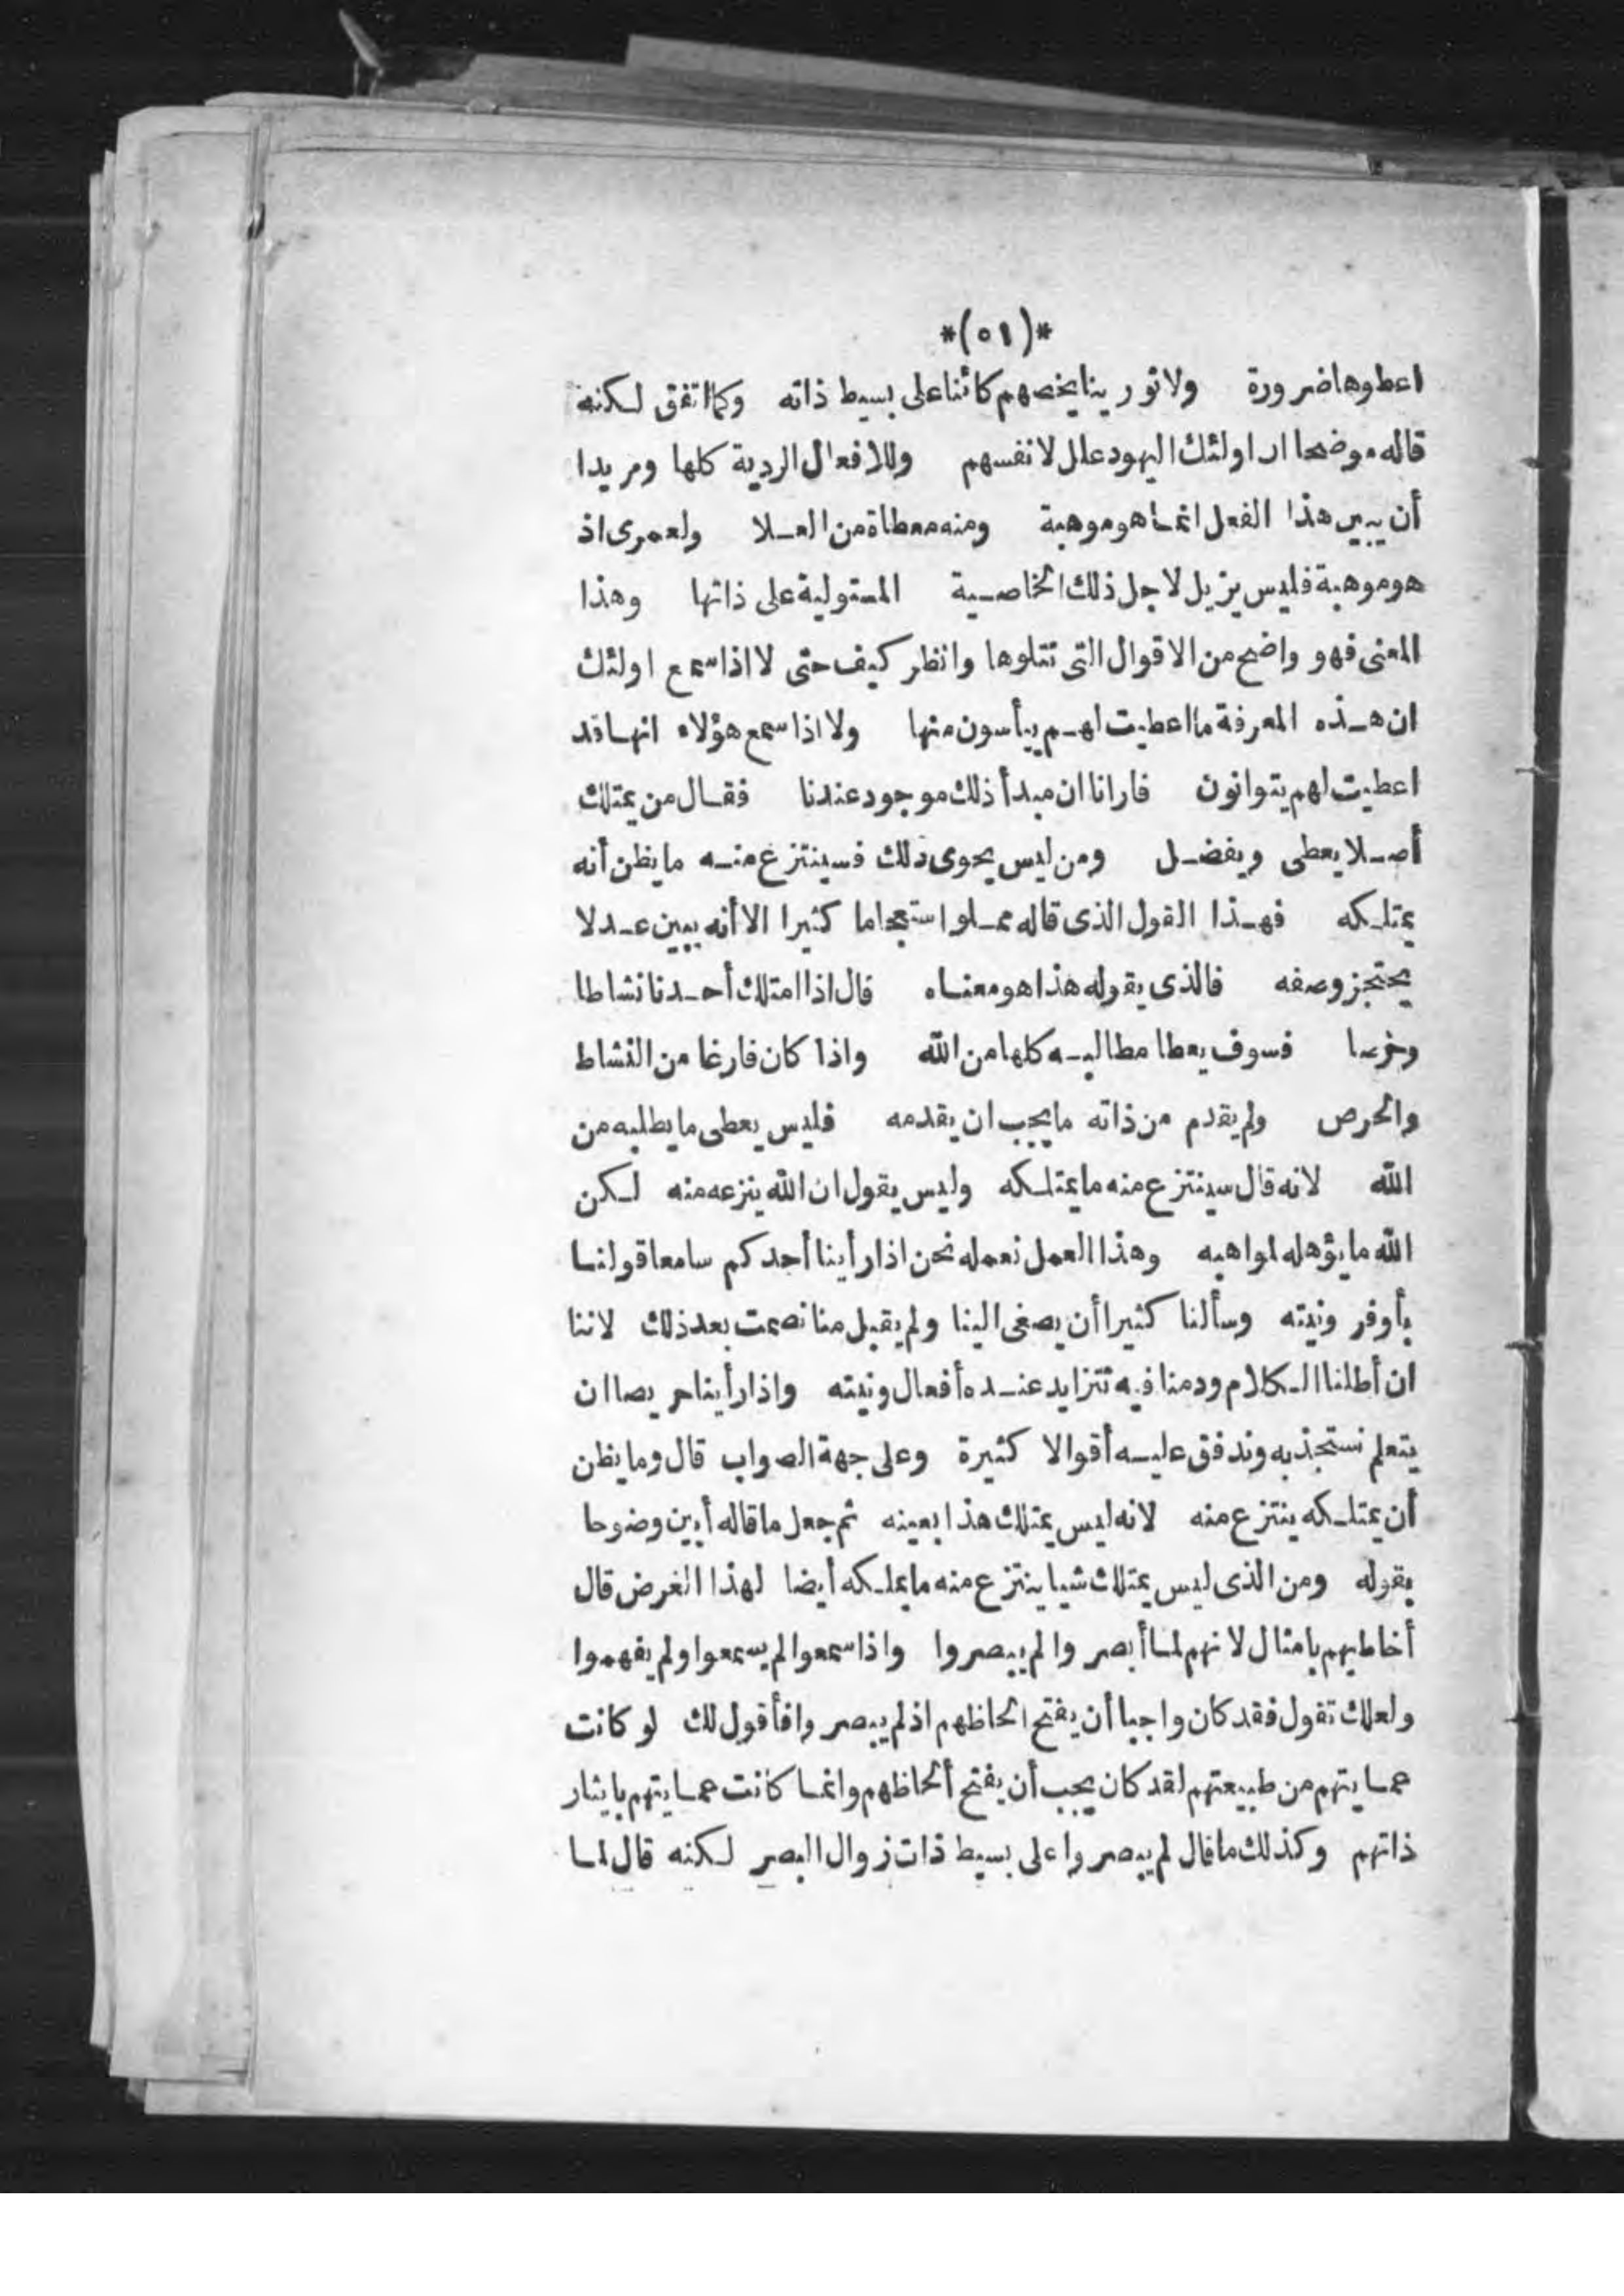 *(٥١)*
اعطوها ضرورة ولا توريثا يخصهم كائنا على بسيط ذاته وكما اتفق لكنه
قاله موضحا ان اولئك اليهود علل لانفسهم وللافعال الردية كلها ومريدا
أن يبين هذا الفعل انما هو موهبة ومنه معطاة من العلا ولعمرى اذ
هو موهبة فليس يزيل لاجل ذلك الخاصية المستولية على ذاتها وهذا
المعنى فهو واضح من الاقوال التى تتلوها وانظر كيف حتى لا اذا سمع اولئك
ان هذه المعرفة ما اعطيت لهم ييأسون منها ولا اذا سمع هؤلاء انها قد
اعطيت لهم يتوانون فارانا ان مبدأ ذلك موجود عندنا فقال من يمتلك
أصلا يعطى ويفضل ومن ليس يحوى ذلك فسينتزع منه ما يظن أنه
يمتلكه فهذا القول الذى قاله مملو استعجاما كثيرا الا أنه يبين عدلا
يحتجز وصفه فالذى يقوله هذا هو معناه قال اذا امتلك أحدنا نشاطا
وحرصا فسوف يعطا مطالبه كلها من الله واذا كان فارغا من النشاط
والحرص ولم يقدم من ذاته ما يجب ان يقدمه فليس يعطى ما يطلبه من
الله لانه قال سينتزع منه ما يمتلكه وليس يقول ان الله ينزعه منه لكن
الله ما يؤهله لمواهبه وهذا العمل نعمله نحن اذا رأينا أحدكم سامعا قولنا
بأوفر ونيته وسألنا كثيرا أن يصغى الينا ولم يقبل منا نصمت بعد ذلك لاننا
ان أطلنا الكلام ودمنا فيه تتزايد عنده أفعال ونيته واذا رأينا حريصا ان
يتعلم نستجذبه وندفق عليه أقوالا كثيرة وعلى جهة الصواب قال وما يظن
أن يمتلكه ينتزع منه لانه ليس يمتلك هذا بعينه ثم جعل ما قاله أبين وضوحا
بقوله ومن الذى ليس يمتلك شيا ينتزع منه ما يملكه أيضا لهذا الغرض قال
أخاطبهم بامثال لانهم لما أبصروا لم يبصروا واذا سمعوا لم يسمعوا ولم يفهموا
ولعلك تقول فقد كان واجبا أن يفتح الحاظهم اذ لم يبصروا فأقول لك لو كانت
عمايتهم من طبيعتهم لقد كان يجب أن يفتح ألحاظهم وانما كانت عمايتهم بايثار
ذاتهم وكذلك ما قال لم يبصروا على بسيط ذات زوال البصر لكنه قال لما